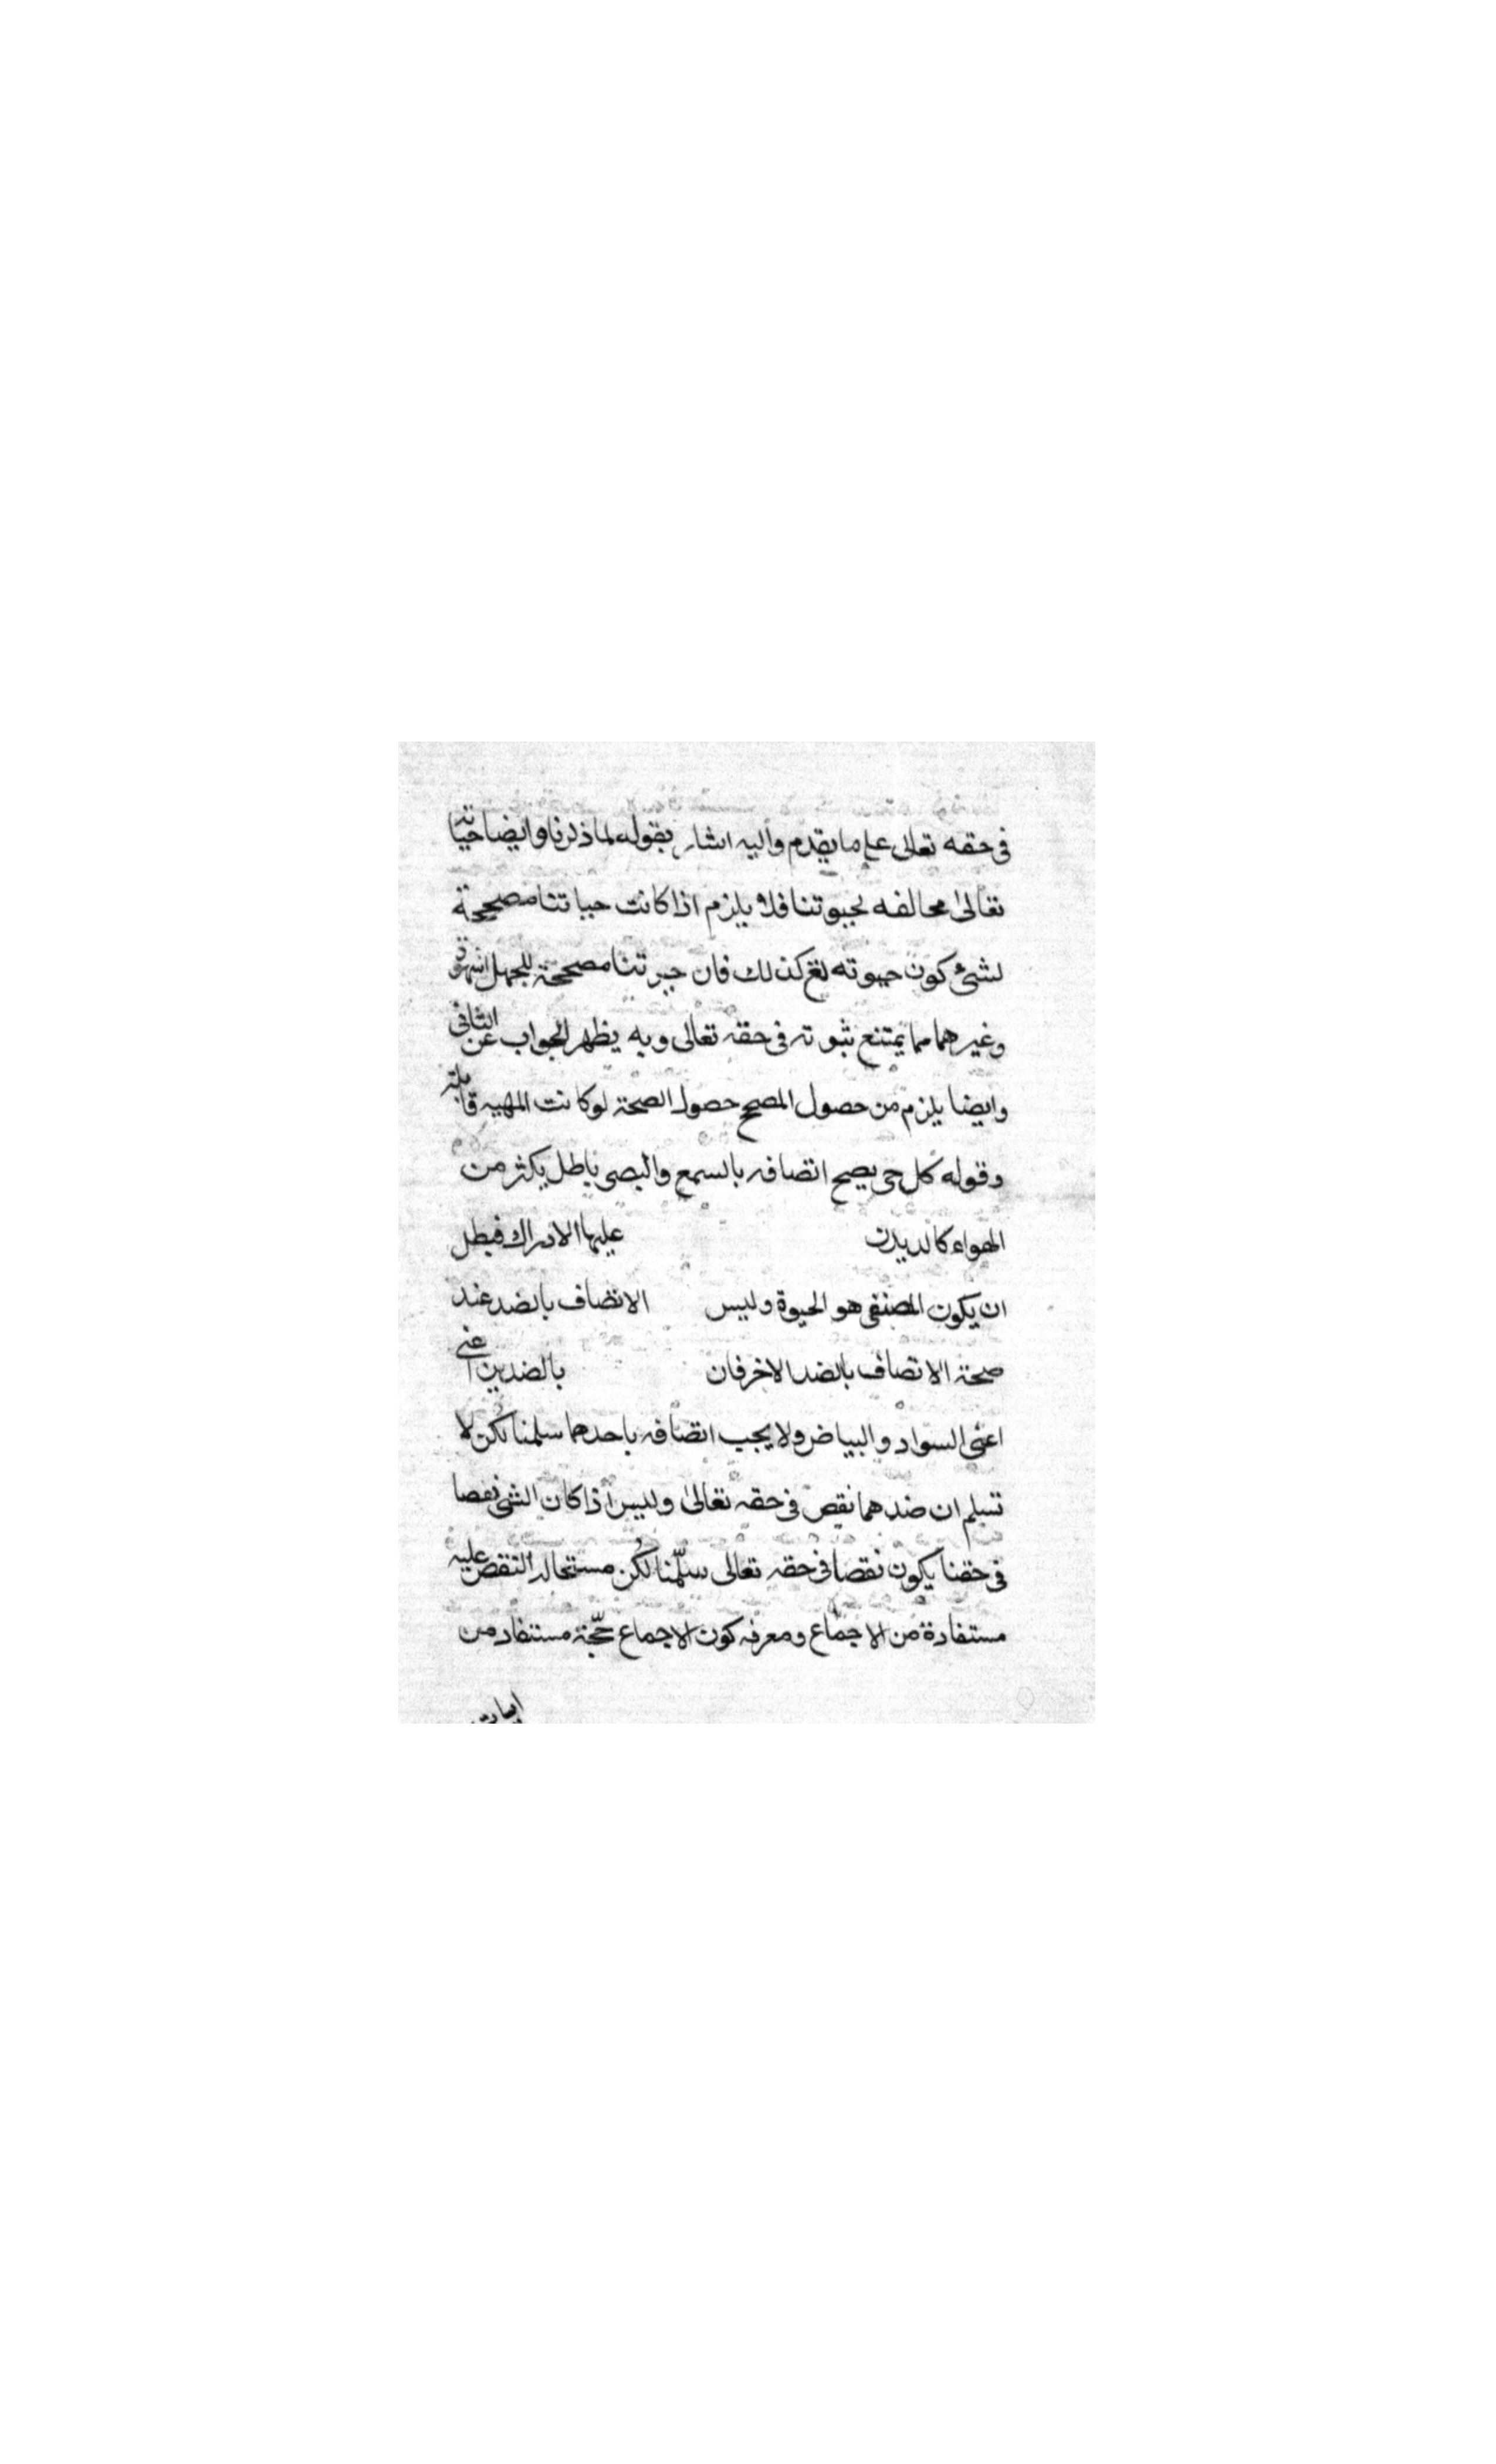 في حقه تعالى على ما يقدم واليه اشار بقوله لما ذكرنا وايضا حياته
تعالى مخالفه لحيوتنا فلا يلزم اذا كانت حياتنا مصححة
لشئ كون حيوته تع كذلك فان حيوتنا مصححة للجهل الشهوة
وغيرهما مما يمتنع ثبوته في حقه تعالى وبه يظهر الجواب عن الثاني
وايضا يلزم من حصول المصحح حصول الصحة لو كانت المهيه قابلة
وقوله كل حي يصح اتصافه بالسمع والبصر باطل بكثر من
الهواء كالديدن عليها الادراك فبطل
ان يكون المصنفى هو الحيوة وليس الاتصاف بالضد عند
صحة الاتصاف بالضد الاخر فان بالضدين اعنى
اعنى السواد والبياض ولا يجب اتصافه باحدهما سلمنا لكن لا
نسلم ان ضدهما نقص في حقه تعالى وليس اذا كان الشئ نقصا
في حقنا يكون نقصا في حقه تعالى سلّمنا لكن مستحاله النقص عليه
مستفادة من الاجماع ومعرفه كون الاجماع حجّة مستفاد من